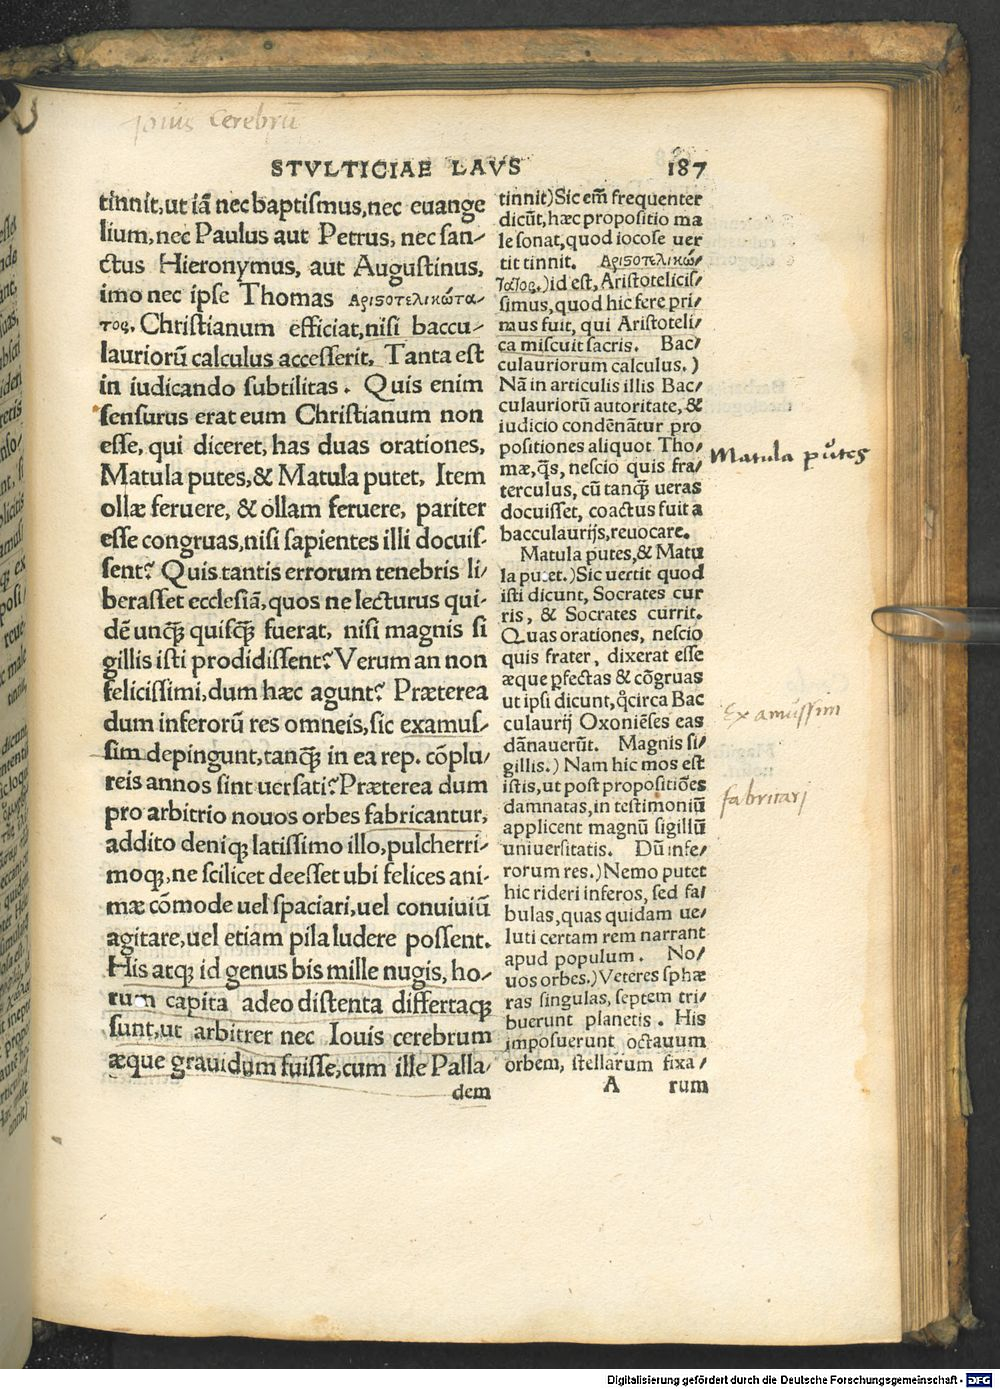 Iouis Cerebrũ
STVLTICIAE LAVS
187
tinnit, ut iã nec baptismus, nec euange
lium, nec Paulus aut Petrus, nec san-
ctus Hieronymus, aut Augustinus,
imo nec ipse Thomas ἀριςοτελικώτα-
τος. Christianum efficiat, nisi baccu-
lauriorũ calculus accesserit. Tanta est
in iudicando subtilitas. Quis enim
sensurus erat eum Christianum non
esse, qui diceret, has duas orationes,
Matula putes, & Matula putet, Item
ollæ feruere, & ollam feruere, pariter
esse congruas, nisi sapientes illi docuis-
sent? Quis tantis errorum tenebris li/
berasset ecclesiã, quos ne lecturus qui-
dẽ unꝗ̃ quisꝗ̃ fuerat, nisi magnis si
gillis isti prodidissent? Verum an non
felicissimi, dum hæc agunt? Præterea
dum inferorũ res omneis, sic examus-
sim depingunt, tanꝗ̃ in ea rep. cõplu/
reis annos sint uersati? Præterea dum
pro arbitrio nouos orbes fabricantur,
addito deniqꝫ latissimo illo, pulcherri-
moqꝫ, ne scilicet deesset ubi felices ani-
mæ cõmode uel spaciari, uel conuiuiũ
agitare, uel etiam pila ludere possent.
His atqꝫ id genus bis mille nugis, ho/
rum capita adeo distenta differtaqꝫ
sunt, ut arbitrer nec Iouis cerebrum
æque grauidum fuisse, cum ille Palla/
dem
tinnit) Sic em̃ frequenter
dicũt, hæc propositio ma
le sonat, quod iocose uer
tit tinnit. Ἀριςοτελικώ/
τατος.) id est, Aristotelicis/
simus, quod hic fere pri/
mus fuit, qui Aristoteli/
ca miscuit sacris. Bac/
culauriorum calculus.)
Nã in articulis illis Bac/
culauriorũ autoritate, &
iudicio condẽnãtur pro
positiones aliquot Tho/
mæ, ꝗ̃s, nescio quis fra/
terculus, cũ tanꝗ̃ ueras
docuisset, coactus fuit a
bacculaurijs, reuocare.
Matula putes, & Matu
la putet.) Sic uertit quod
isti dicunt, Socrates cur
ris, & Socrates currit.
Quas orationes, nescio
quis frater, dixerat esse
æque ꝑfectas & cõgruas
ut ipsi dicunt, q̊circa Bac
culaurij Oxoniẽses eas
dãnauerũt. Magnis si/
gillis.) Nam hic mos est
istis, ut post propositiões
damnatas, in testimoniũ
applicent magnũ sigillũ
uniuersitatis. Dũ infe/
rorum res.) Nemo putet
hic rideri inferos, sed fa/
bulas, quas quidam ue/
luti certam rem narrant
apud populum. No/
uos orbes.) Veteres sphæ
ras singulas, septem tri/
buerunt planetis. His
imposuerunt octauum
orbem, stellarum fixa/
A rum
Matula putes
Examussim
fabricari
Digitalisierung gefördert durch die Deutsche Forschungsgemeinschaft - DFG